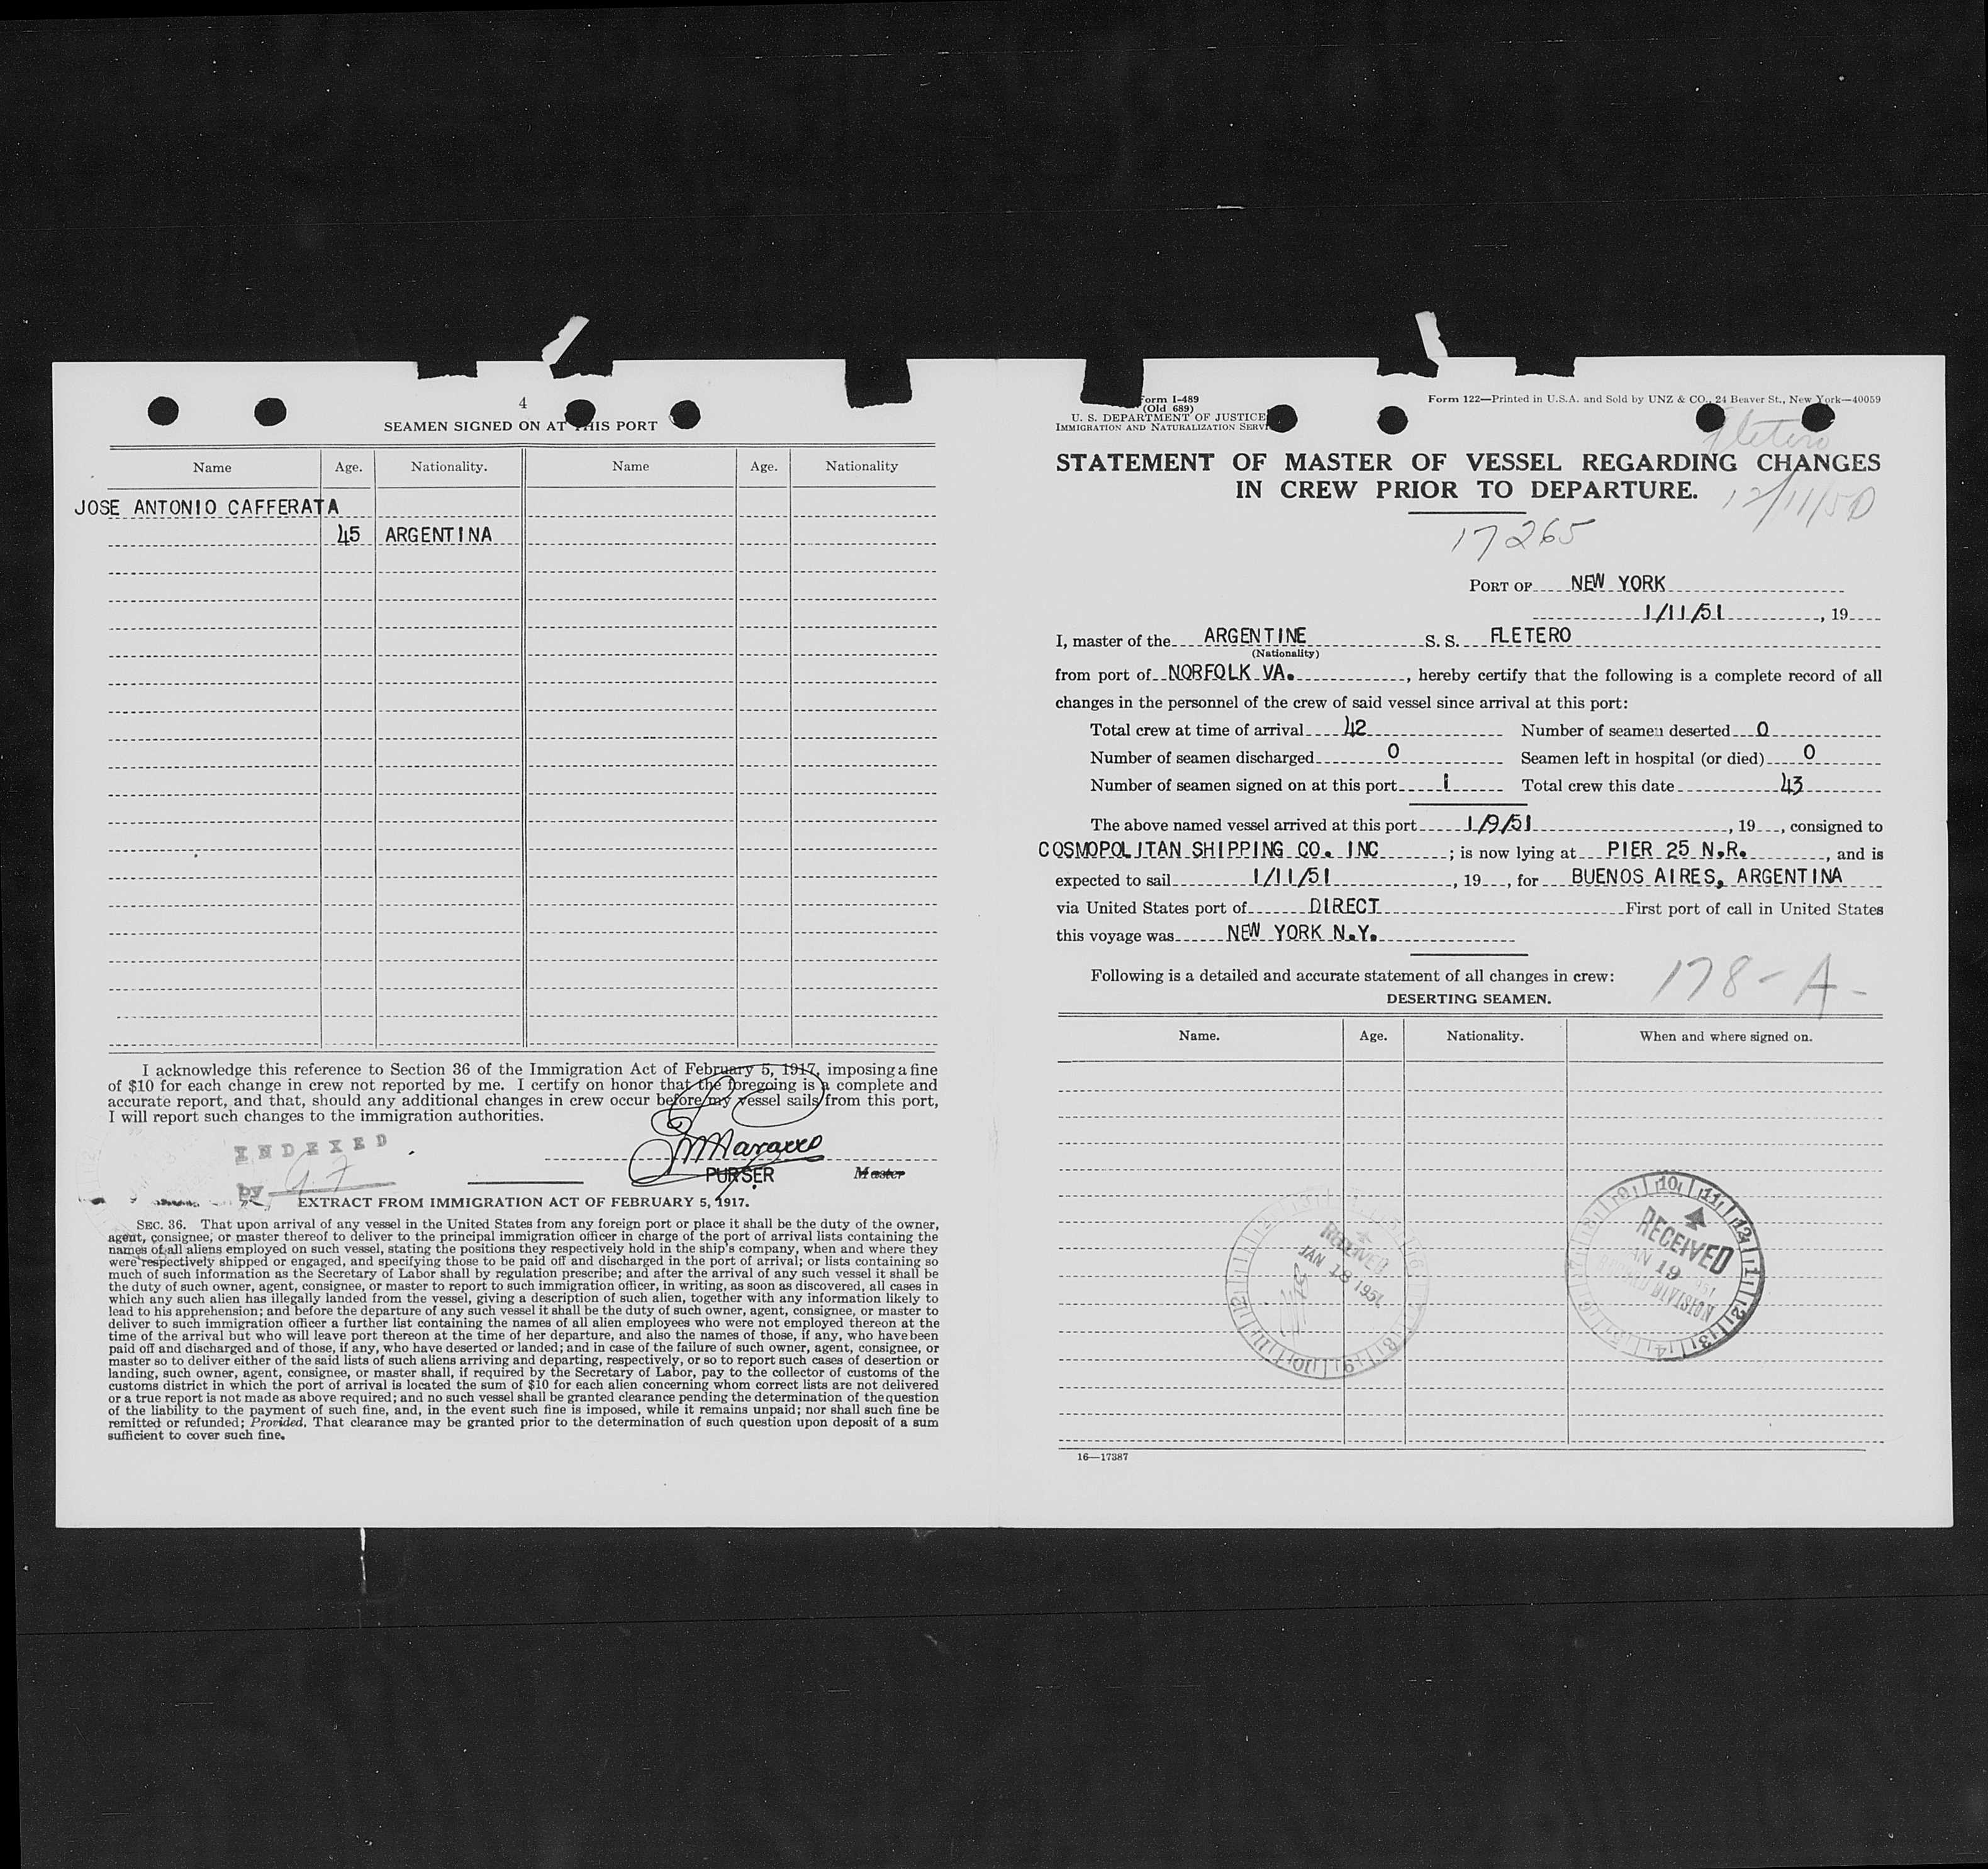 4
SEAMEN SIGNED ON AT THIS PORT
Name Age. Nationality. Name Age. Nationality
JOSE ANTONIO CAFFERATA
45 ARGENTINA
I acknowledge this reference to Section 36 of the Immigration Act of February 5, 1917, imposing a fine
of $10 for each change in crew not reported by me. I certify on honor that the foregoing is a complete and
accurate report, and that, should any additional changes in crew occur before my vessel sails from this port,
I will report such changes to the immigration authorities.
INDEXED
by
PURSER Master
EXTRACT FROM IMMIGRATION ACT OF FEBRUARY 5, 1917.
SEC. 36. That upon arrival of any vessel in the United States from any foreign port or place it shall be the duty of the owner,
agent, consignee, or master thereof to deliver to the principal immigration officer in charge of the port of arrival lists containing the
names of all aliens employed on such vessel, stating the positions they respectively hold in the ship's company, when and where they
were respectively shipped or engaged, and specifying those to be paid off and discharged in the port of arrival; or lists containing so
much of such information as the Secretary of Labor shall by regulation prescribe; and after the arrival of any such vessel it shall be
the duty of such owner, agent, consignee, or master to report to such immigration officer, in writing, as soon as discovered, all cases in
which any such alien has illegally landed from the vessel, giving a description of such alien, together with any information likely to
lead to his apprehension; and before the departure of any such vessel it shall be the duty of such owner, agent, consignee, or master to
deliver to such immigration officer a further list containing the names of all alien employees who were not employed thereon at the
time of the arrival but who will leave port thereon at the time of her departure, and also the names of those, if any, who have been
paid off and discharged and of those, if any, who have deserted or landed; and in case of the failure of such owner, agent, consignee, or
master so to deliver either of the said lists of such aliens arriving and departing, respectively, or so to report such cases of desertion or
landing, such owner, agent, consignee, or master shall, if required by the Secretary of Labor, pay to the collector of customs of the
customs district in which the port of arrival is located the sum of $10 for each alien concerning whom correct lists are not delivered
or a true report is not made as above required; and no such vessel shall be granted clearance pending the determination of the question
of the liability to the payment of such fine, and, in the event such fine is imposed, while it remains unpaid; nor shall such fine be
remitted or refunded; Provided, That clearance may be granted prior to the determination of such question upon deposit of a sum
sufficient to cover such fine.
Form I-489
(Old 689)
U. S. DEPARTMENT OF JUSTICE
IMMIGRATION AND NATURALIZATION SERVI
Form 122—Printed in U.S.A. and Sold by UNZ & CO., 24 Beaver St., New York—40059
Fletero
STATEMENT OF MASTER OF VESSEL REGARDING CHANGES
IN CREW PRIOR TO DEPARTURE.
12/11/50
17265
PORT OF NEW YORK
1/11/51, 19
I, master of the ARGENTINE S. S. FLETERO
(Nationality)
from port of NORFOLK VA., hereby certify that the following is a complete record of all
changes in the personnel of the crew of said vessel since arrival at this port:
Total crew at time of arrival 42 Number of seamen deserted 0
Number of seamen discharged 0 Seamen left in hospital (or died) 0
Number of seamen signed on at this port 1 Total crew this date 43
The above named vessel arrived at this port 1/9/51, 19, consigned to
COSMOPOLITAN SHIPPING CO. INC; is now lying at PIER 25 N.R., and is
expected to sail 1/11/51, 19, for BUENOS AIRES, ARGENTINA
via United States port of DIRECT First port of call in United States
this voyage was NEW YORK N.Y.
Following is a detailed and accurate statement of all changes in crew:
178-A-
DESERTING SEAMEN.
Name. Age. Nationality. When and where signed on.
RECEIVED
JAN 18 1951
RECEIVED
JAN 19 1951
DIVISION
16—17387